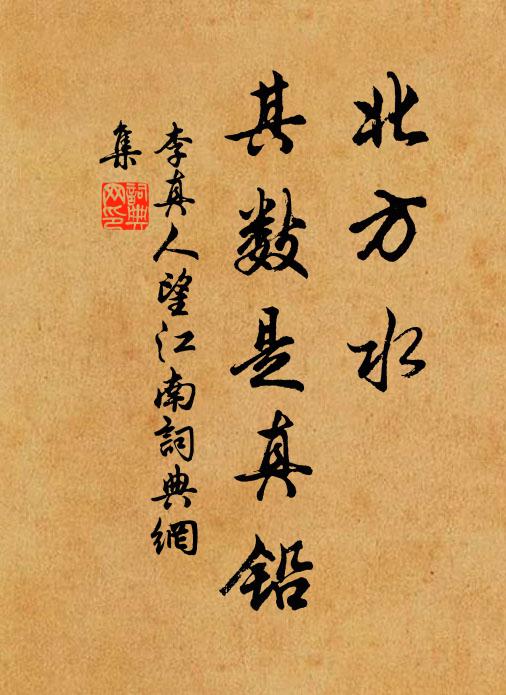 北方水
其数是真铅
李真人望江南詞典網
集
詞典网印